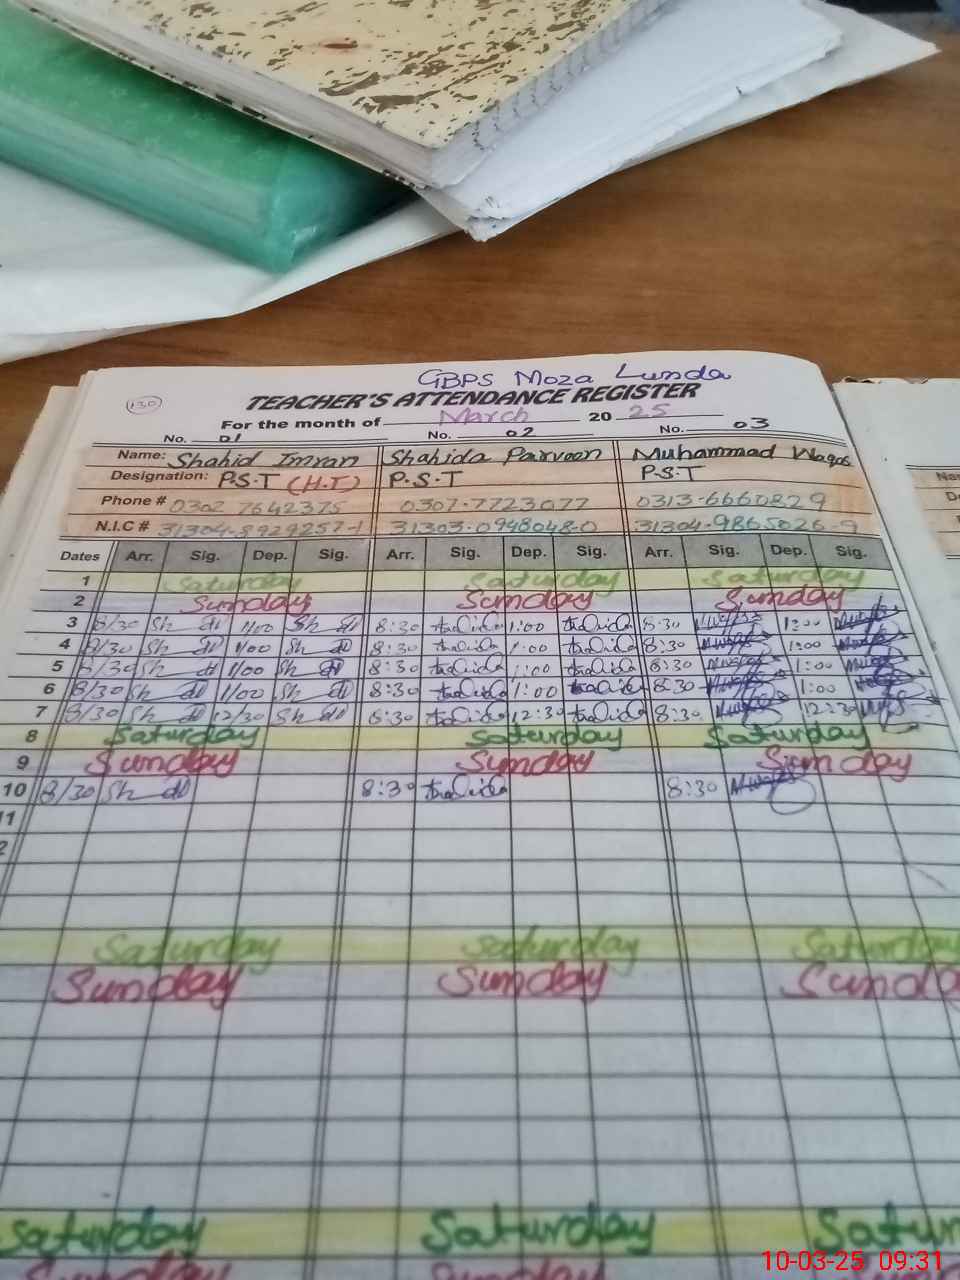 GBPS Moza Lunda
130
TEACHER'S ATTENDANCE REGISTER
For the month of March 20 25
No. 01 No. 02 No. 03
Name: Shahid Imran Shahida Parveen Muhammad Waqas
Designation: P.S.T (H.T) P.S.T P.S.T
Phone # 0302 7642375 0307-7723077 0313-6660829
N.I.C # 31304-8929257-1 31303-0948048-0 31304-9865026-9
Dates Arr. Sig. Dep. Sig. Arr. Sig. Dep. Sig. Arr. Sig. Dep. Sig.
1 Saturday Saturday Saturday
2 Sunday Sunday Sunday
3 8/30 1/00 8:30 1:00 8:30 1:00
4 8/30 1/00 8:30 1:00 8:30 1:00
5 8/30 1/00 8:30 1:00 8:30 1:00
6 8/30 1/00 8:30 1:00 8:30 1:00
7 8/30 12/30 8:30 12:30 8:30 12:30
8 Saturday Saturday Saturday
9 Sunday Sunday Sunday
10 8/30 8:30 8:30
11
2
Saturday Saturday Saturday
Sunday Sunday Sunday
Saturday Saturday Saturday
10-03-25 09:31